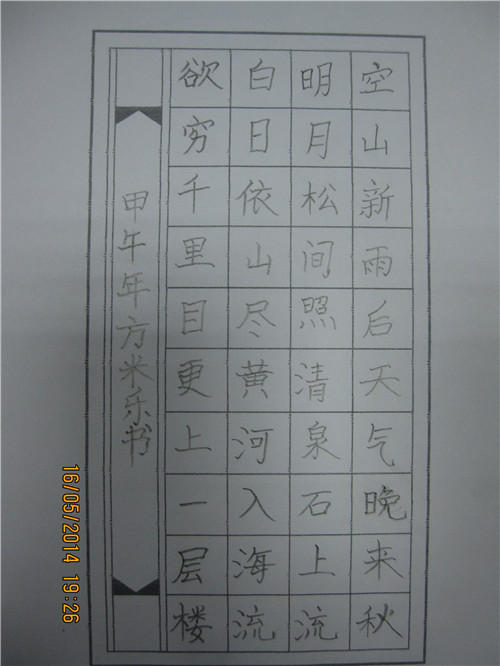 空山新雨后天气晚来秋
明月松间照清泉石上流
白日依山尽黄河入海流
欲穷千里目更上一层楼
甲午年方米乐书
16/05/2014 19:26